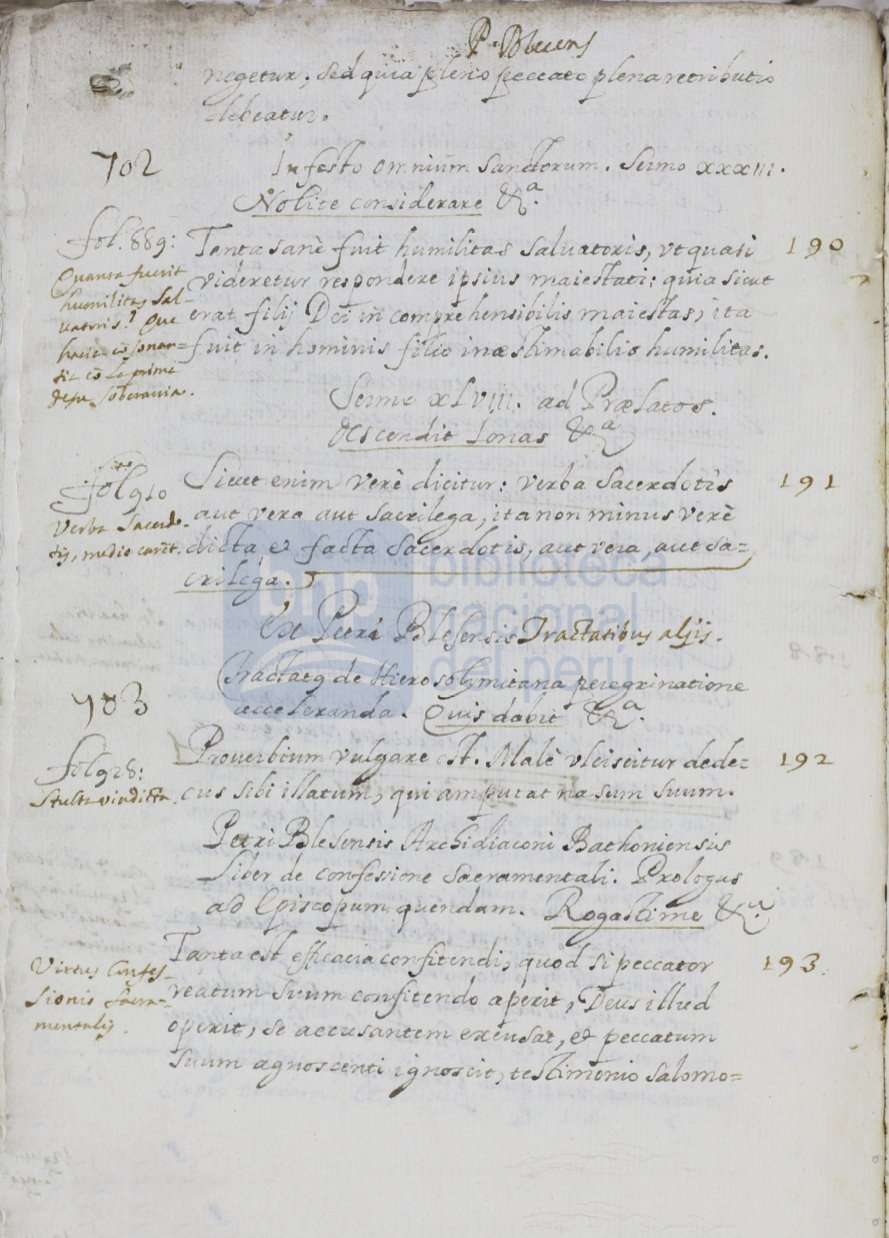 P. Blesens
negetur, sed quia pleno peccato plena retributio
debeatur.
702
In festo omnium Sanctorum. Sermo XXXIII.
Nolite considerare &ca.
fol. 889:
Quanta fuerit
humilitas Sal-
uatoris!
Tanta sanè fuit humilitas Saluatoris, vt quasi
190
videretur respondere ipsius maiestati: quia sicut
erat filij Dei incomprehensibilis maiestas, ita
fuit in hominis filio inæstimabilis humilitas.
Sermo XLVIII. ad Prælatos.
descendit Ionas &ca
fol 910
Verba Sacerdo-
tis, medio carēt.
Sicut enim verè dicitur: verba Sacerdotis
191
aut vera aut Sacrilega, ita non minus verè
dicta et facta Sacerdotis, aut vera, aut sa=
crilega.
Ex Petri Blesensis Tractatibus alijs.
703
Tractatq de Hierosolymitana peregrinatione
acceleranda. Quis dabit &ca.
fol 928:
Stulta vindicta.
Prouerbium vulgare est. Malè vlciscitur dede=
192
cus sibi illatum, qui amputat nasum suum.
Petri Blesensis Archidiaconi Bathoniensis
Liber de confessione Sacramentali. Prologus
ad Episcopum quendam. Rogastime &ca.
Virtus Confes-
sionis Sacra-
mentalis.
Tanta est efficacia confitendi, quod si peccator
193.
reatum suum confitendo aperit, Deus illud
operit, se accusantem excusat, et peccatum
suum agnoscenti ignoscit, testimonio Salomo=
bnp biblioteca
nacional
del perú